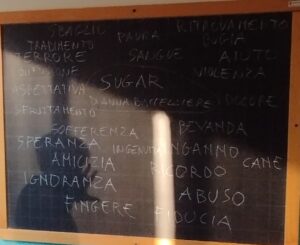 SBAGLIO PAURA RITROVAMENTO
TRADIMENTO BUGIA
TERRORE SANGUE AIUTO
VIOLENZA
ASPETTATIVA SUGAR
SFRUTTAMENTO
SOFFERENZA BEVANDA
SPERANZA INGENUITÀ INGANNO
AMICIZIA RICORDO CANE
IGNORANZA
ABUSO
FINGERE FIDUCIA